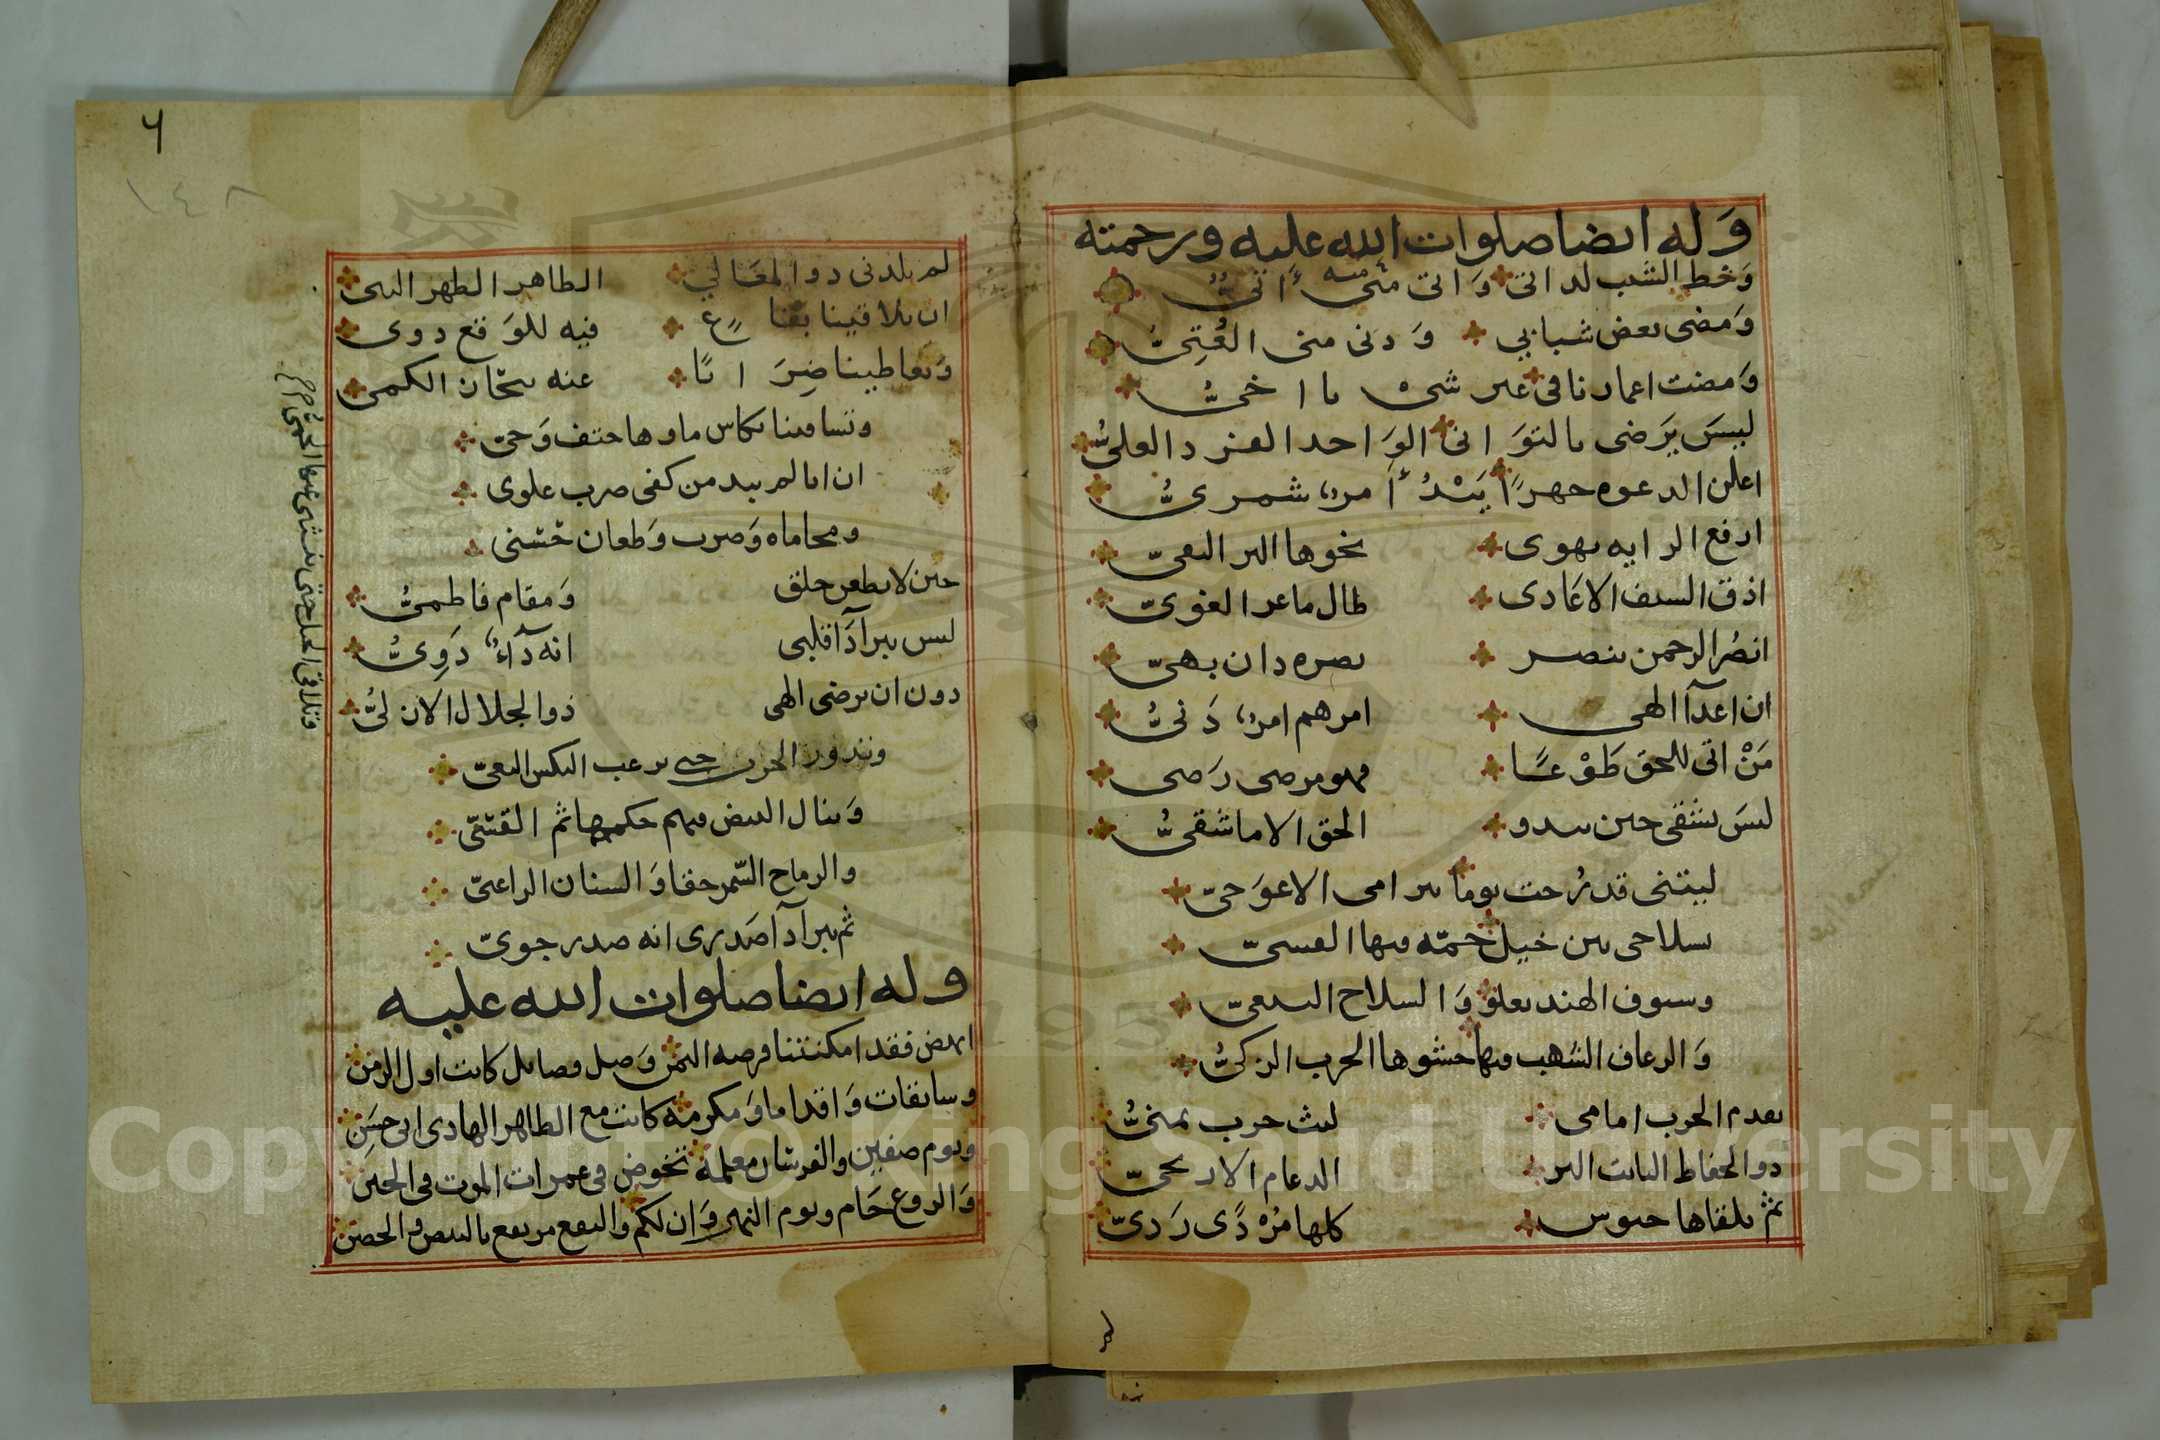 وله ايضا صلوات الله عليه ورحمته
وخط الشيب لداتى واتى منى اتىُّ
ومضى بعض شبابي ودنى منى العُتِىُّ
ومضت اعمارنا فى غير شىْ يا اخىُّ
ليسَ يَرضى بالتوانى الواحد الفرد العلىُّ
اعلن الدعوه جهرًا يَبْدُ أمرٌ شمرىُّ
ارفع الرايه يهوى نحوها البر التقىّ
اذق السيف الاعَادى طال ماعز الغوىّ
انصُر الرحمن ينصر نصره دان بهىّ
ان اعدآ الهى امرهم امرٌ دَنىُّ
مَنْ اتى للحق طَوْعًا فهو مرضى رَضى
ليسَ يشقى حين يبدو الحق الا ماشقىُّ
ليتنى قدرُحت يوما يترامى الاعوَجىّ
بسلاحى بين خيل جمّه فيها القسىّ
وسيوف الهند تعلو وَالسلاح التبعىّ
وَالرعاف الشهب فيها حشوها الحرب الزكىُّ
يقدم الحرب امامى ليث حرب يمنىُّ
ذوالحفاظ الثابت البر الدعام الاريحىّ
ثم يلقاها جيوس كلها مرُه دًى رَدىّ
٦
١٤٨
لم يلدنى ذوالمعَالي الطاهر الطهر النبى
ان تلاقينا بقاعٍ فيه للوَقع دوى
وَتعاطينا ضِرَابًا عنه ينحَان الكمى
وتساقينا بكاس ماوها حتف وَحىّ
ان انا لم يبد من كفى ضرب علوى
ومحاماه وَضرب وَطعان حَسَنى
حين لايطعن خلق وَمقام فاطمىُّ
ليس يبرآ دَا قلبى انه دَآءٌ دَوِىُّ
دون ان يرضى الهى ذوالجلال الازلىُّ
وتدور الحرب حتى يرعب النكس التقىّ
وَينال البيض فيهم حكمها ثم القنىّ
والرماح السّمر حقا وَالسنان الراعبىّ
ثم يبرآ دآ صَدرى انه صدر جوىّ
وله ايضا صلوات الله عليه
انهض فقد امكنتنا فرصه اليمن وَصل فضايل كانت اول الزمن
وسابقات وَاقداما وَمكرمه كانت مع الطاهر الهادى ابى حسَنِ
ويوم صفين والفرسَان معلمة تخوض فى غمرات الموت فى الجنن
وَالروع حَام ويوم النهروَان لكم والنقع مرتفع بالبيض والحصن